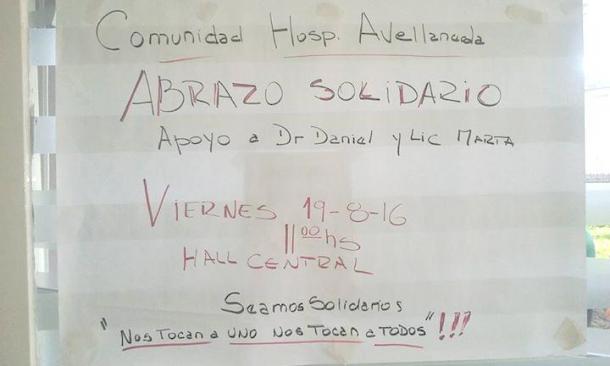 Comunidad Hosp. Avellaneda
ABRAZO SOLIDARIO
Apoyo a Dr Daniel y Lic MARTA
VIERNES 19-8-16
11 00 hs
HALL CENTRAL
Seamos Solidarios
"Nos Tocan a UNO Nos Tocan a TODOS"!!!